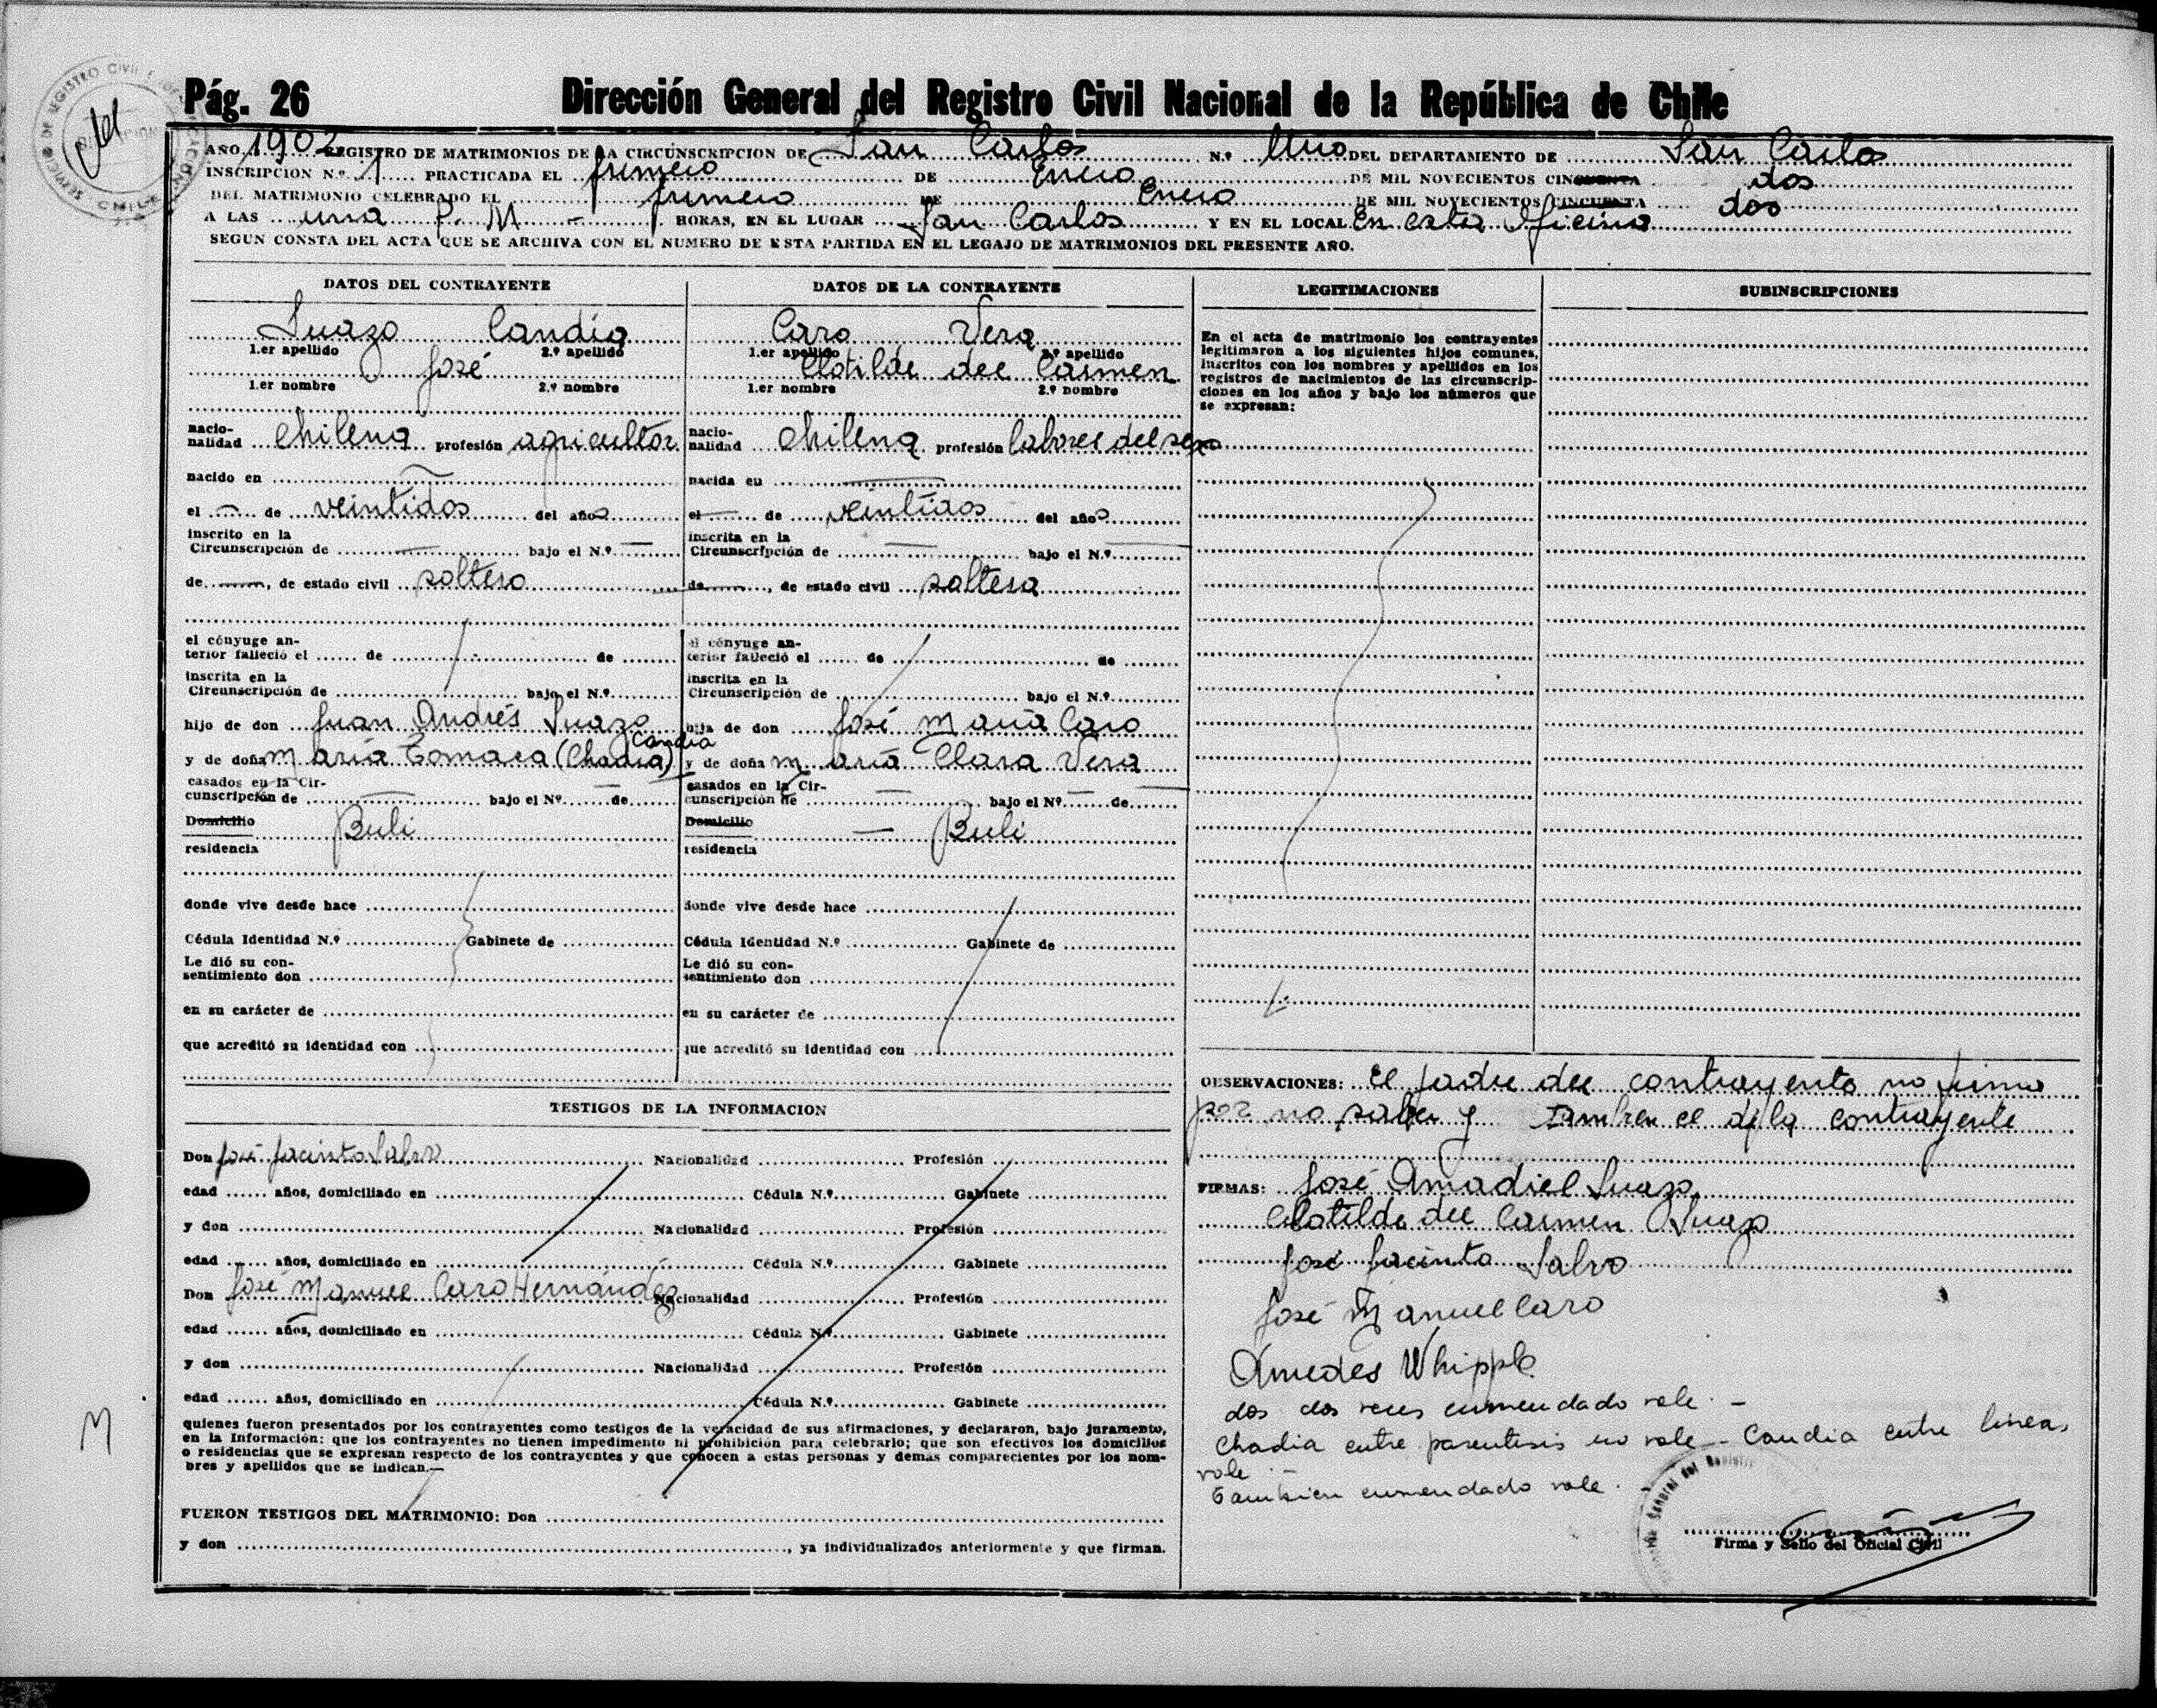 Pág. 26 Dirección General del Registro Civil Nacional de la República de Chile
AÑO 1902 REGISTRO DE MATRIMONIOS DE LA CIRCUNSCRIPCION DE San Carlos N.º Uno DEL DEPARTAMENTO DE San Carlos
INSCRIPCION N.º 1 PRACTICADA EL primero DE Enero DE MIL NOVECIENTOS CINCUENTA dos
DEL MATRIMONIO CELEBRADO EL primero DE Enero DE MIL NOVECIENTOS CINCUENTA dos
A LAS una P. M - HORAS, EN EL LUGAR San Carlos Y EN EL LOCAL En esta Oficina
SEGUN CONSTA DEL ACTA QUE SE ARCHIVA CON EL NUMERO DE ESTA PARTIDA EN EL LEGAJO DE MATRIMONIOS DEL PRESENTE AÑO.
DATOS DEL CONTRAYENTE
Suazo Candia
1.er apellido 2.º apellido
José
1.er nombre 2.º nombre
nacio-
nalidad chilena profesión agricultor
nacido en —
el — de veintidos del años
inscrito en la
Circunscripción de — bajo el N.º —
de —, de estado civil soltero
el cónyuge an-
terior falleció el de de
inscrita en la
Circunscripción de bajo el N.º
hijo de don Juan Andrés Suazo
Candia
y de doña María Tomasa (Chadia)
casados en la Cir-
cunscripción de — bajo el Nº — de
Domicilio Buli
residencia
donde vive desde hace
Cédula Identidad N.º Gabinete de
Le dió su con-
sentimiento don
en su carácter de
que acreditó su identidad con
DATOS DE LA CONTRAYENTE
Caro Vera
1.er apellido 2.º apellido
Clotilde del Carmen
1.er nombre 2.º nombre
nacio-
nalidad chilena profesión labores del sexo
nacida en —
el — de veintidos del años
inscrita en la
Circunscripción de — bajo el N.º —
de —, de estado civil soltera
el cónyuge an-
terior falleció el de de
inscrita en la
Circunscripción de bajo el N.º
hija de don José María Caro
y de doña María Clara Vera
casados en la Cir-
cunscripción de — bajo el Nº — de —
Domicilio — Buli
residencia
donde vive desde hace
Cédula Identidad N.º Gabinete de
Le dió su con-
sentimiento don
en su carácter de
que acreditó su identidad con
LEGITIMACIONES
En el acta de matrimonio los contrayentes
legitimaron a los siguientes hijos comunes,
inscritos con los nombres y apellidos en los
registros de nacimientos de las circunscrip-
ciones en los años y bajo los números que
se expresan:
SUBINSCRIPCIONES
TESTIGOS DE LA INFORMACION
Don José Jacinto Salvo Nacionalidad Profesión
edad años, domiciliado en Cédula N.º Gabinete
y don Nacionalidad Profesión
edad años, domiciliado en Cédula N.º Gabinete
Don José Manuel Caro Hernández Nacionalidad Profesión
edad años, domiciliado en Cédula N.º Gabinete
y don Nacionalidad Profesión
edad años, domiciliado en Cédula N.º Gabinete
quienes fueron presentados por los contrayentes como testigos de la veracidad de sus afirmaciones, y declararon, bajo juramento,
en la Información: que los contrayentes no tienen impedimento ni prohibición para celebrarlo; que son efectivos los domicilios
o residencias que se expresan respecto de los contrayentes y que conocen a estas personas y demás comparecientes por los nom-
bres y apellidos que se indican.—
FUERON TESTIGOS DEL MATRIMONIO: Don
y don , ya individualizados anteriormente y que firman.
OBSERVACIONES: El padre del contrayente no firma
por no saber y tambien el de la contrayente
FIRMAS: José Amadiel Suazo
Clotilde del Carmen Suazo
José Jacinto Salvo
José Manuel Caro
Amedes Whipple
dos dos veces enmendado vale. -
Chadia entre parentesis no vale - Candia entre lineas
vale -
Tambien enmendado vale.
Firma y Sello del Oficial Civil
M